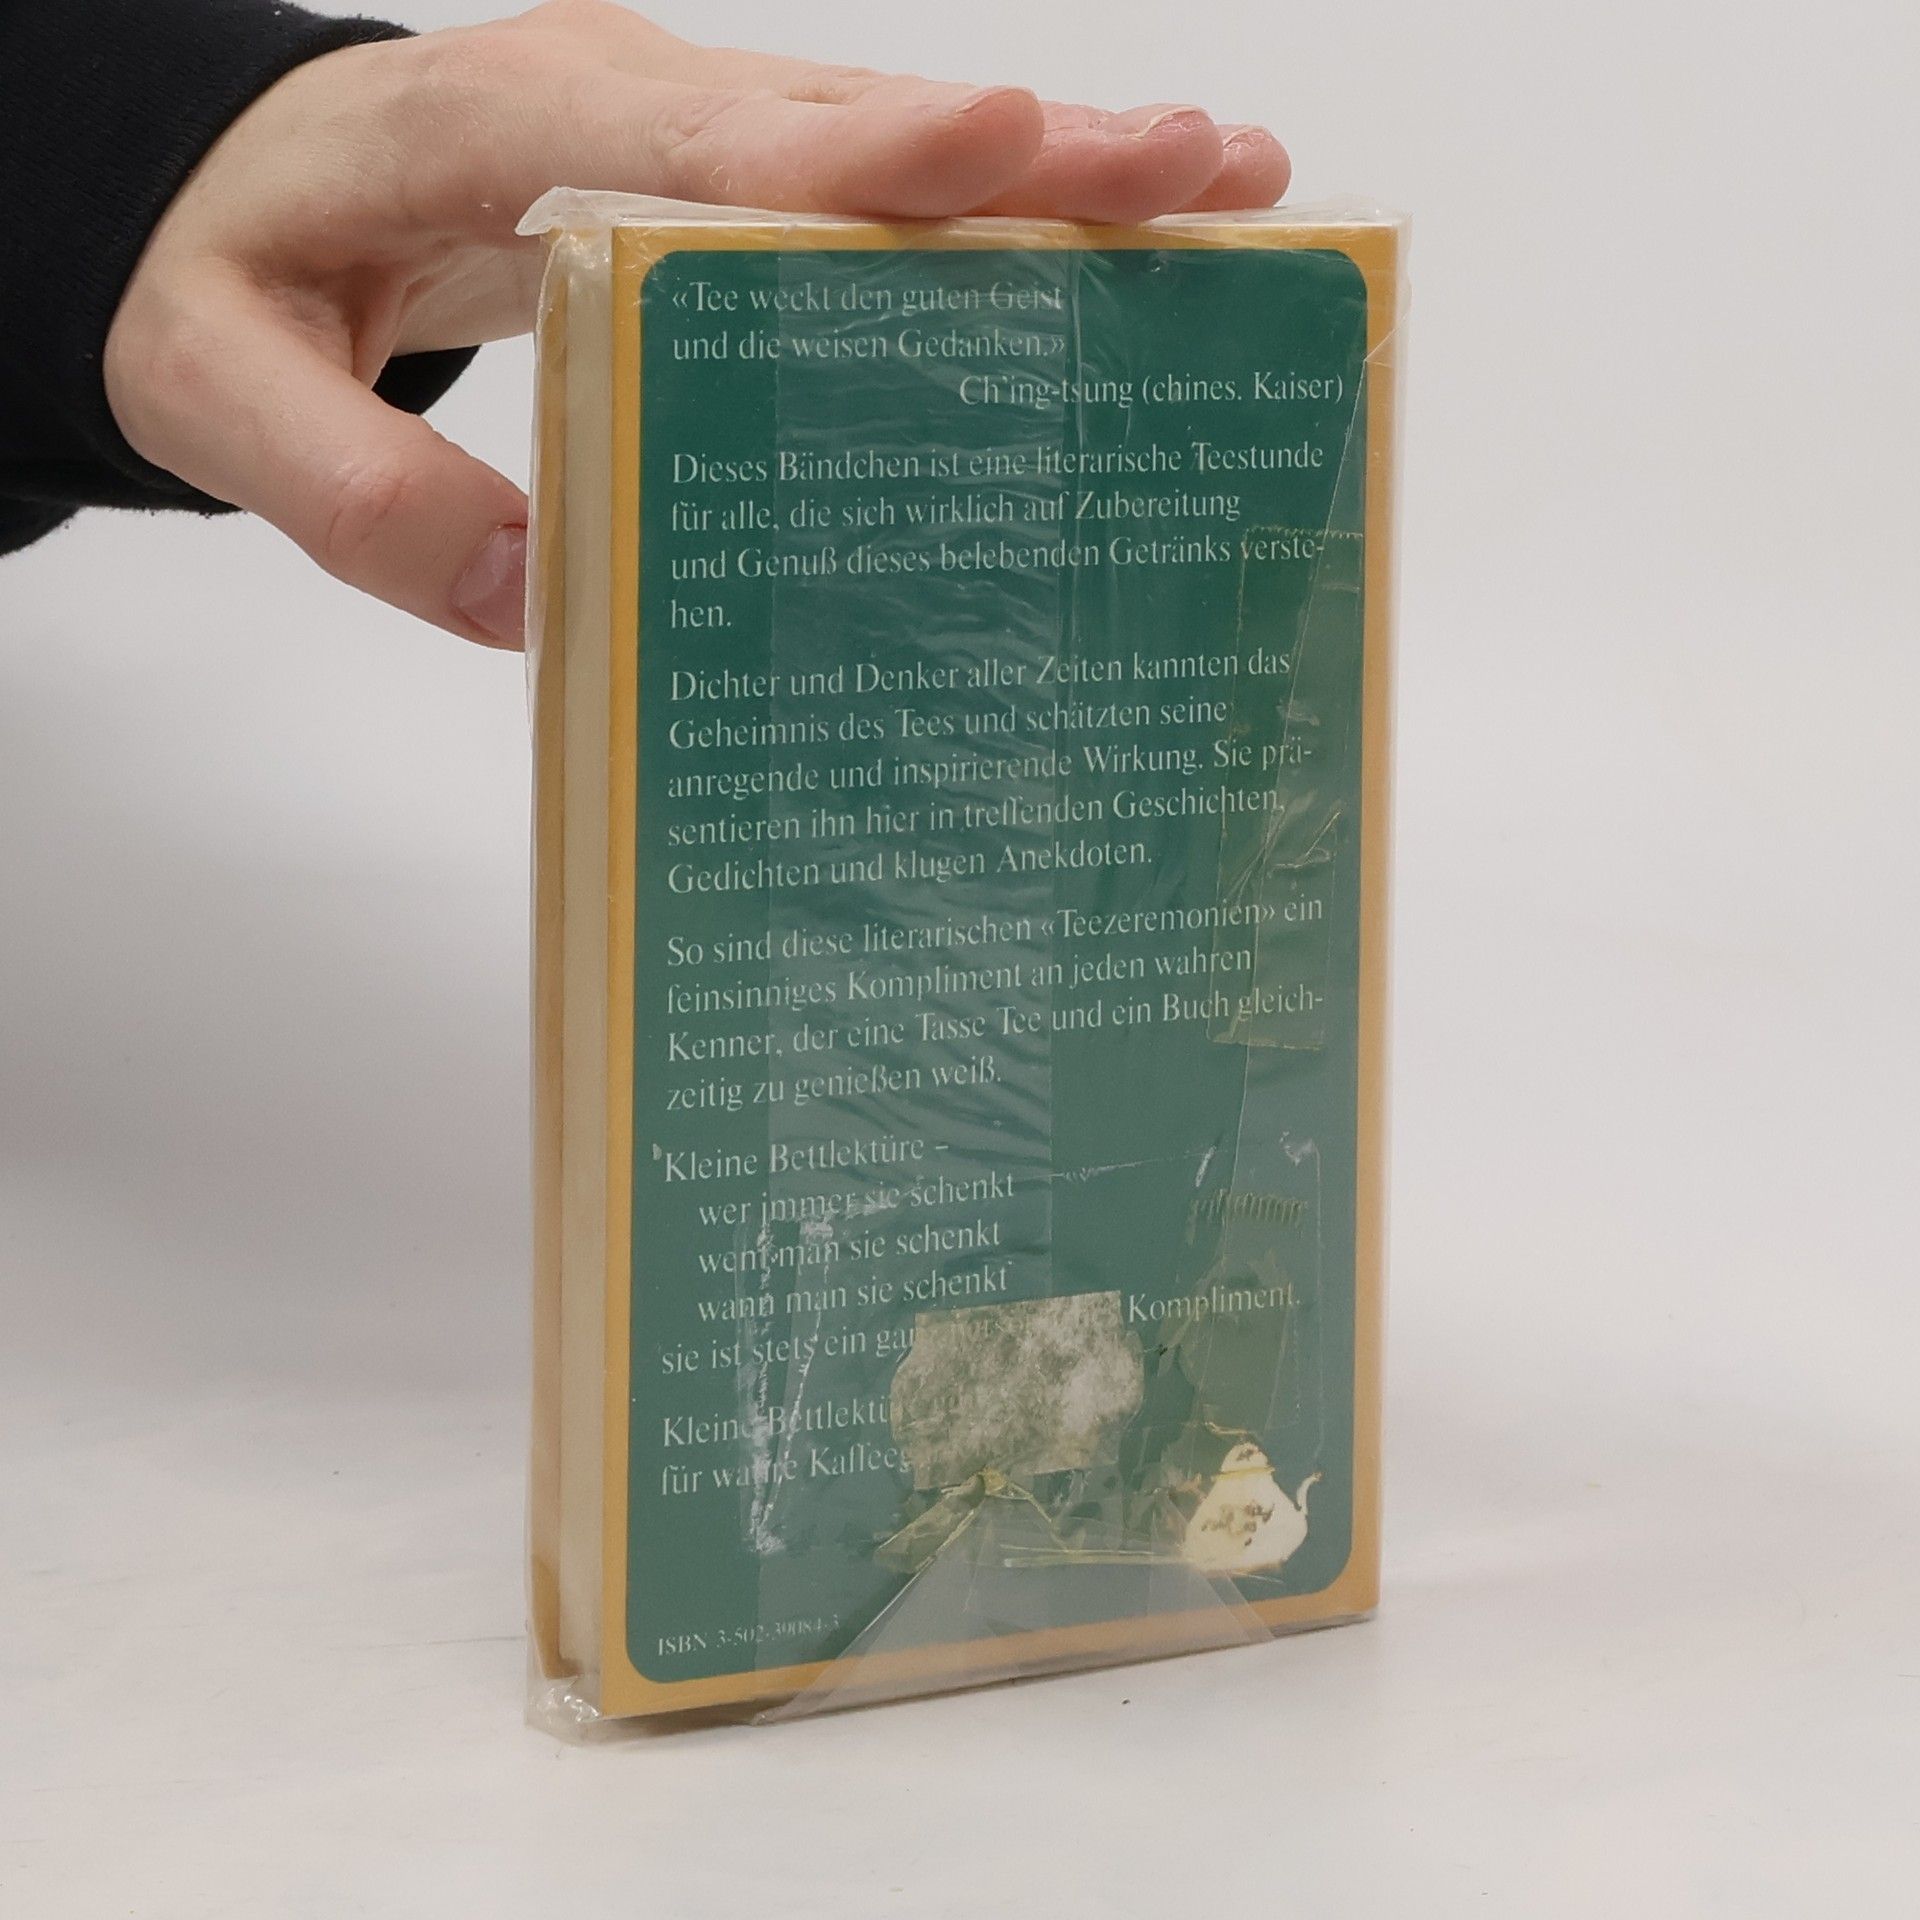 «Tee weckt den guten Geist
und die weisen Gedanken.»
Ch'ing-tsung (chines. Kaiser)
Dieses Bändchen ist eine literarische Teestunde
für alle, die sich wirklich auf Zubereitung
und Genuß dieses belebenden Getränks verste-
hen.
Dichter und Denker aller Zeiten kannten das
Geheimnis des Tees und schätzten seine
anregende und inspirierende Wirkung. Sie prä-
sentieren ihn hier in treffenden Geschichten,
Gedichten und klugen Anekdoten.
So sind diese literarischen «Teezeremonien» ein
feinsinniges Kompliment an jeden wahren
Kenner, der eine Tasse Tee und ein Buch gleich-
zeitig zu genießen weiß.
Kleine Bettlektüre –
wer immer sie schenkt
wem man sie schenkt
wann man sie schenkt
sie ist stets ein Kompliment.
Kleine
für wahre
ISBN 3-502-39084-3